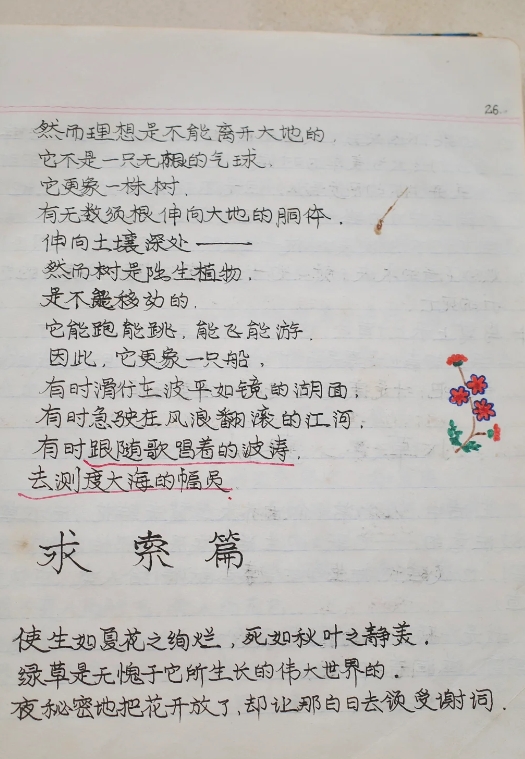 26.
然而理想是不能离开大地的.
它不是一只无根的气球.
它更象一株树.
有无数须根伸向大地的胴体.
伸向土壤深处——
然而树是陆生植物.
是不能移动的.
它能跑能跳，能飞能游.
因此，它更象一只船，
有时滑行在波平如镜的湖面.
有时急驶在风浪翻滚的江河.
有时跟随歌唱着的波涛.
去测度大海的幅员.
求索篇
使生如夏花之绚烂，死如秋叶之静美.
绿草是无愧于它所生长的伟大世界的.
夜秘密地把花开放了，却让那白日去领受谢词.